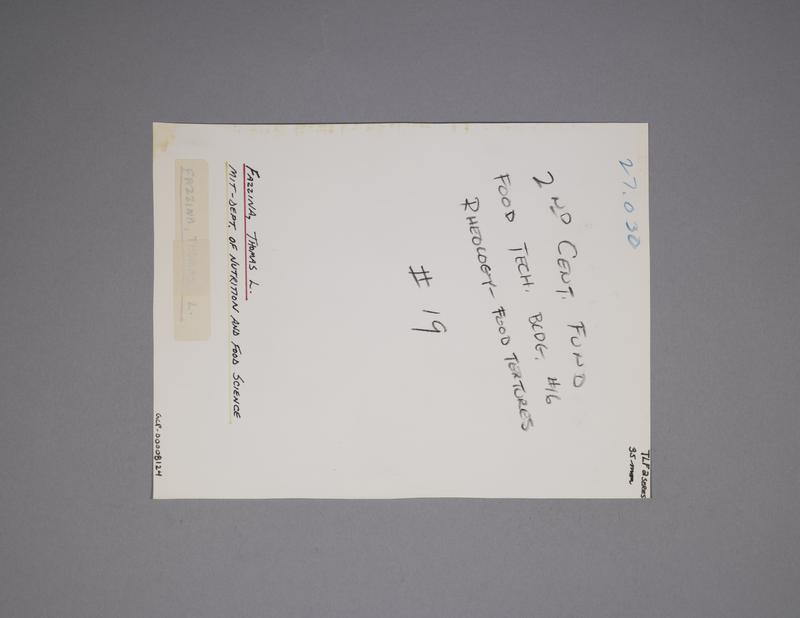 27.030
2ND CENT. FUND
FOOD TECH. BLDG. #16
RHEOLOGY- FOOD TEXTURES
# 19
FAZZINA, THOMAS L.
MIT-DEPT. OF NUTRITION AND FOOD SCIENCE
FAZZINA, THOMAS L.
TLF 2 SERIES
35-mm
GCP-00008124